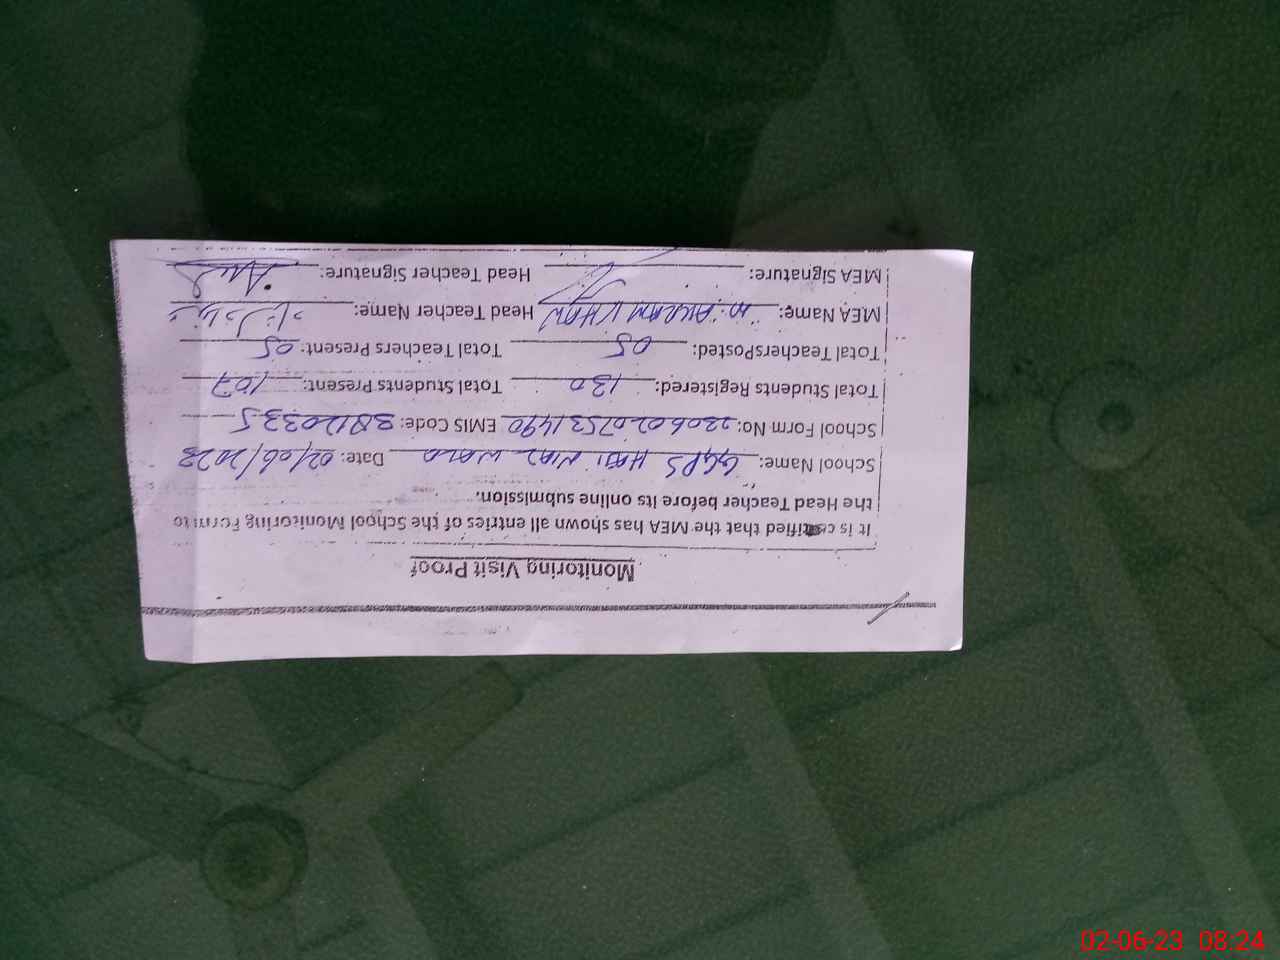 Monitoring Visit Proof
It is certified that the MEA has shown all entries of the School Monitoring Form to
the Head Teacher before its online submission.
School Name: GGPS HAJI NIAZ WALA Date: 02/06/2023
School Form No: 23060207531490 EMIS Code: 38120335
Total Students Registered: 130 Total Students Present: 107
Total TeachersPosted: 05 Total Teachers Present: 05
MEA Name: M. AKRAM KHAN Head Teacher Name:
MEA Signature: Head Teacher Signature:
02-06-23 08:24